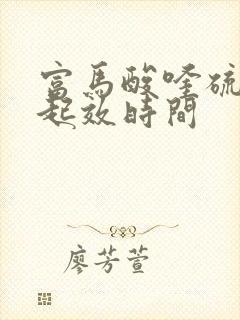 富馬酸喹硫
起效時間
廖芳萱